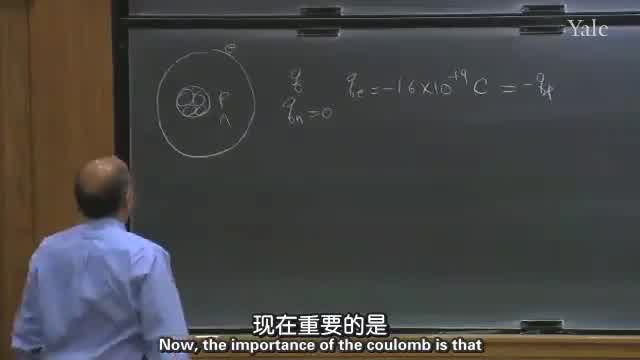 Yale
e
P
n
q
q_n = 0
q_e = -1.6 × 10^-19 C = -q_p
现在重要的是
Now, the importance of the coulomb is that